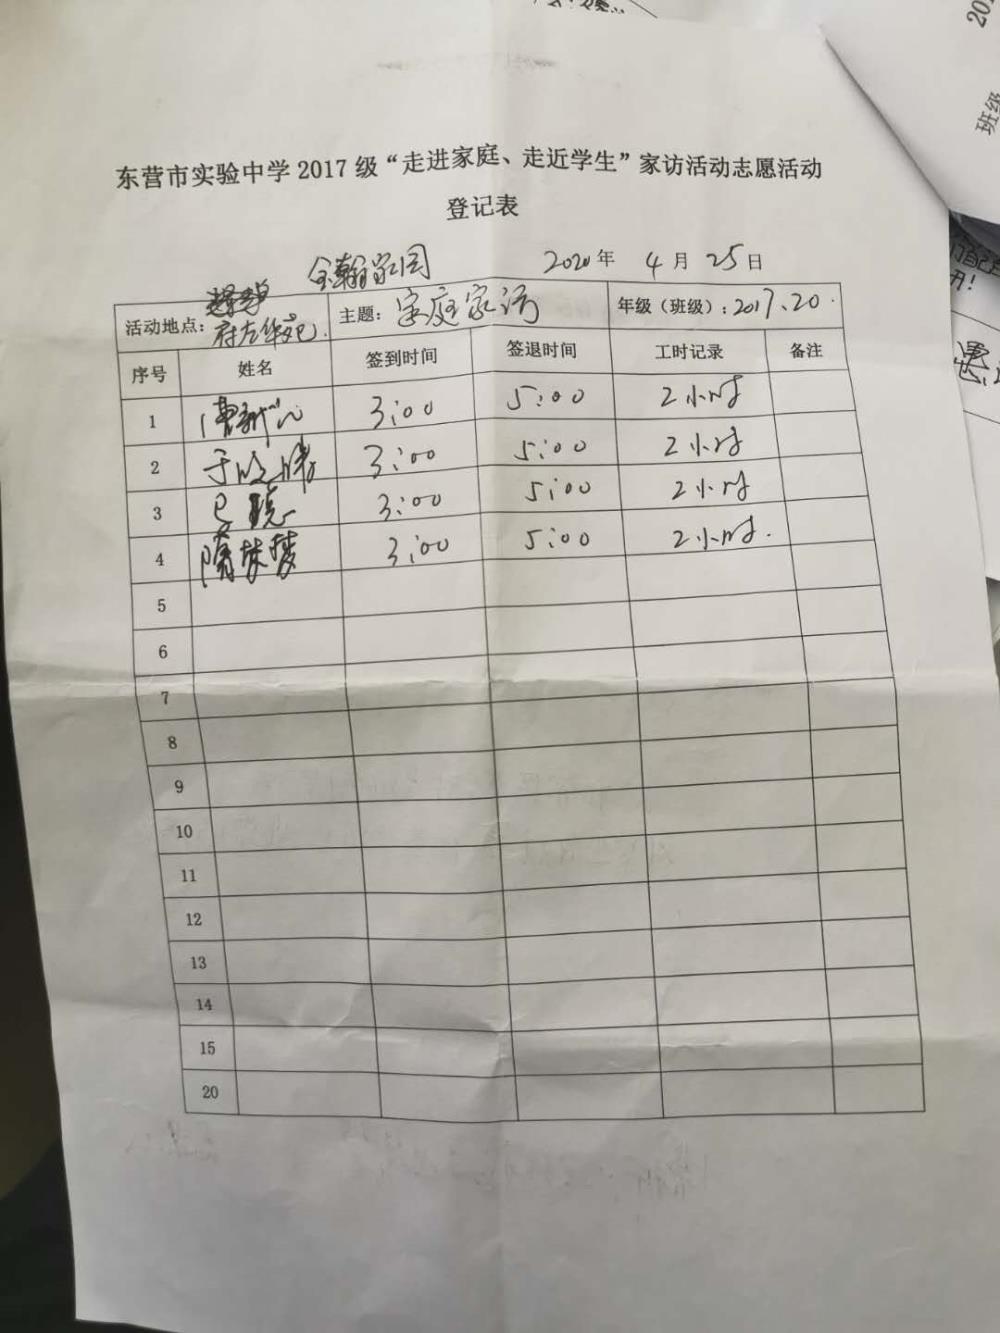 东营市实验中学 2017 级“走进家庭、走近学生”家访活动志愿活动
登记表
金瀚家园 2020 年 4 月 25 日
活动地点: 府左华苑. 主题: 家庭家访 年级（班级）: 2017.20.
序号 姓名 签到时间 签退时间 工时记录 备注
1 3:00 5:00 2小时
2 3:00 5:00 2小时
3 3:00 5:00 2小时
4 3:00 5:00 2小时.
5
6
7
8
9
10
11
12
13
14
15
20
班级